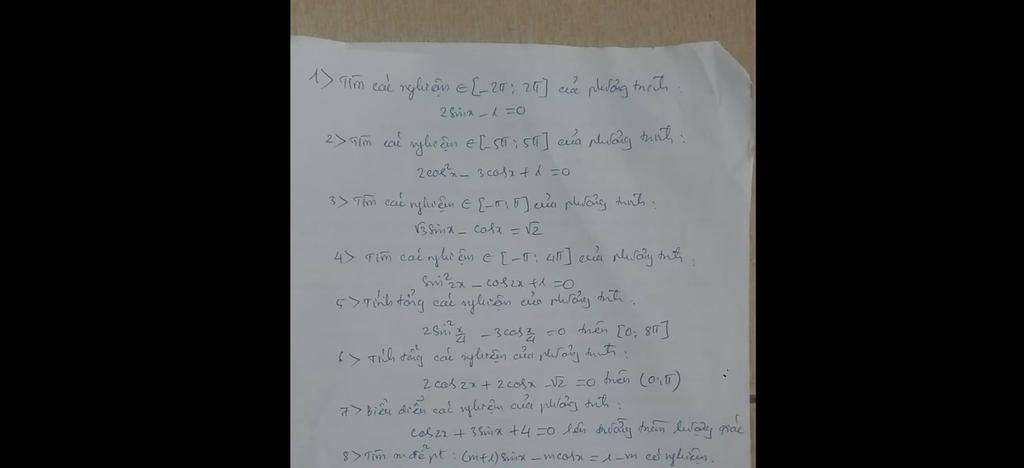 1> Tìm các nghiệm ∈ [-2π; 2π] của phương trình:
2sinx - 1 = 0
2> Tìm các nghiệm ∈ [-5π; 5π] của phương trình:
2cos²x - 3cosx + 1 = 0
3> Tìm các nghiệm ∈ [-π; π] của phương trình:
√3sinx - cosx = √2
4> Tìm các nghiệm ∈ [-π; 4π] của phương trình:
sin²2x - cos2x + 1 = 0
5> Tính tổng các nghiệm của phương trình:
2sin²x/4 - 3cosx/4 = 0 trên [0; 8π]
6> Tính tổng các nghiệm của phương trình:
2cos2x + 2cosx - √2 = 0 trên (0;π)
7> Biểu diễn các nghiệm của phương trình:
cos2x + 3sinx + 4 = 0 lên đường tròn lượng giác
8> Tìm m để pt: (m+1)sinx - mcosx = 1 - m có nghiệm.